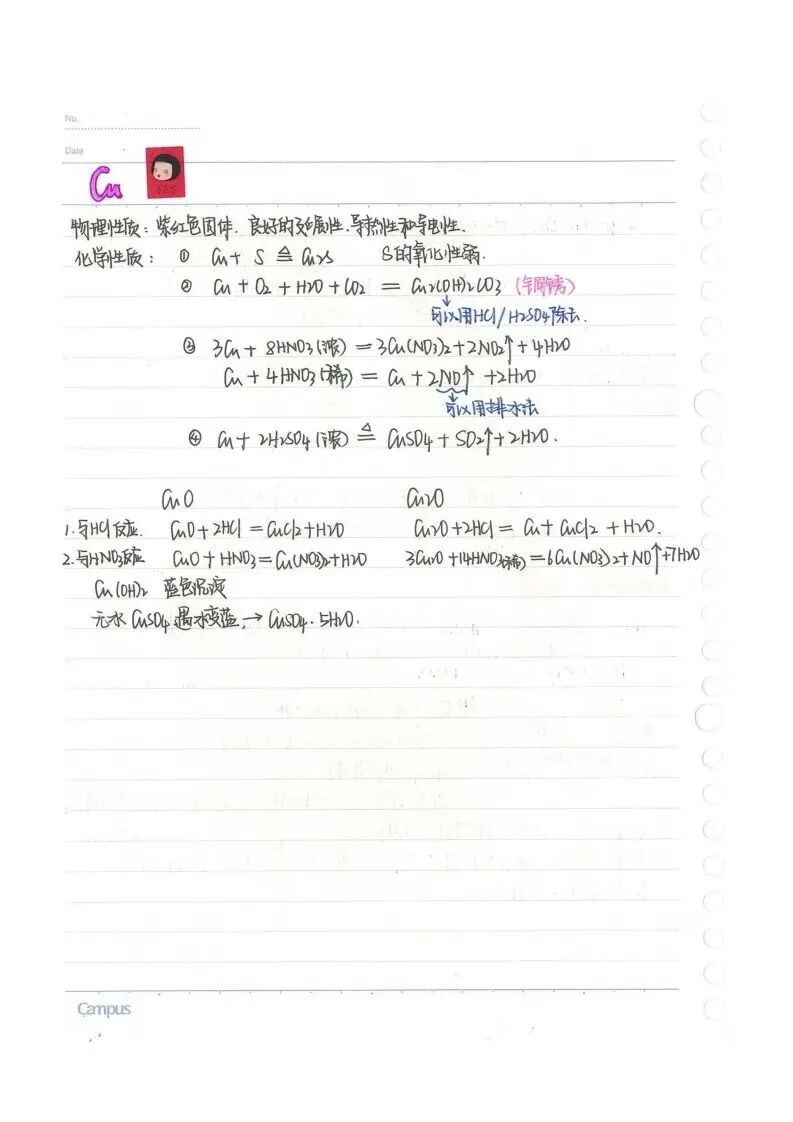 No.
Date
Cu
物理性质：紫红色固体．良好的延展性．导热性和导电性．
化学性质：① Cu + S ≜ Cu2S S的氧化性弱．
② Cu + O2 + H2O + CO2 = Cu2(OH)2CO3 (铜锈)
可以用HCl/H2SO4除去．
③ 3Cu + 8HNO3(浓) = 3Cu(NO3)2 + 2NO2↑ + 4H2O
Cu + 4HNO3(稀) = Cu + 2NO↑ + 2H2O
可以用排水法
④ Cu + 2H2SO4(浓) ≜ CuSO4 + SO2↑ + 2H2O．
CuO Cu2O
1.与HCl反应． CuO + 2HCl = CuCl2 + H2O Cu2O + 2HCl = Cu + CuCl2 + H2O．
2.与HNO3反应 CuO + HNO3 = Cu(NO3)2 + H2O 3Cu2O + 14HNO3(稀) = 6Cu(NO3)2 + NO↑ + 7H2O
Cu(OH)2 蓝色沉淀
无水CuSO4遇水变蓝，→ CuSO4·5H2O．
Campus